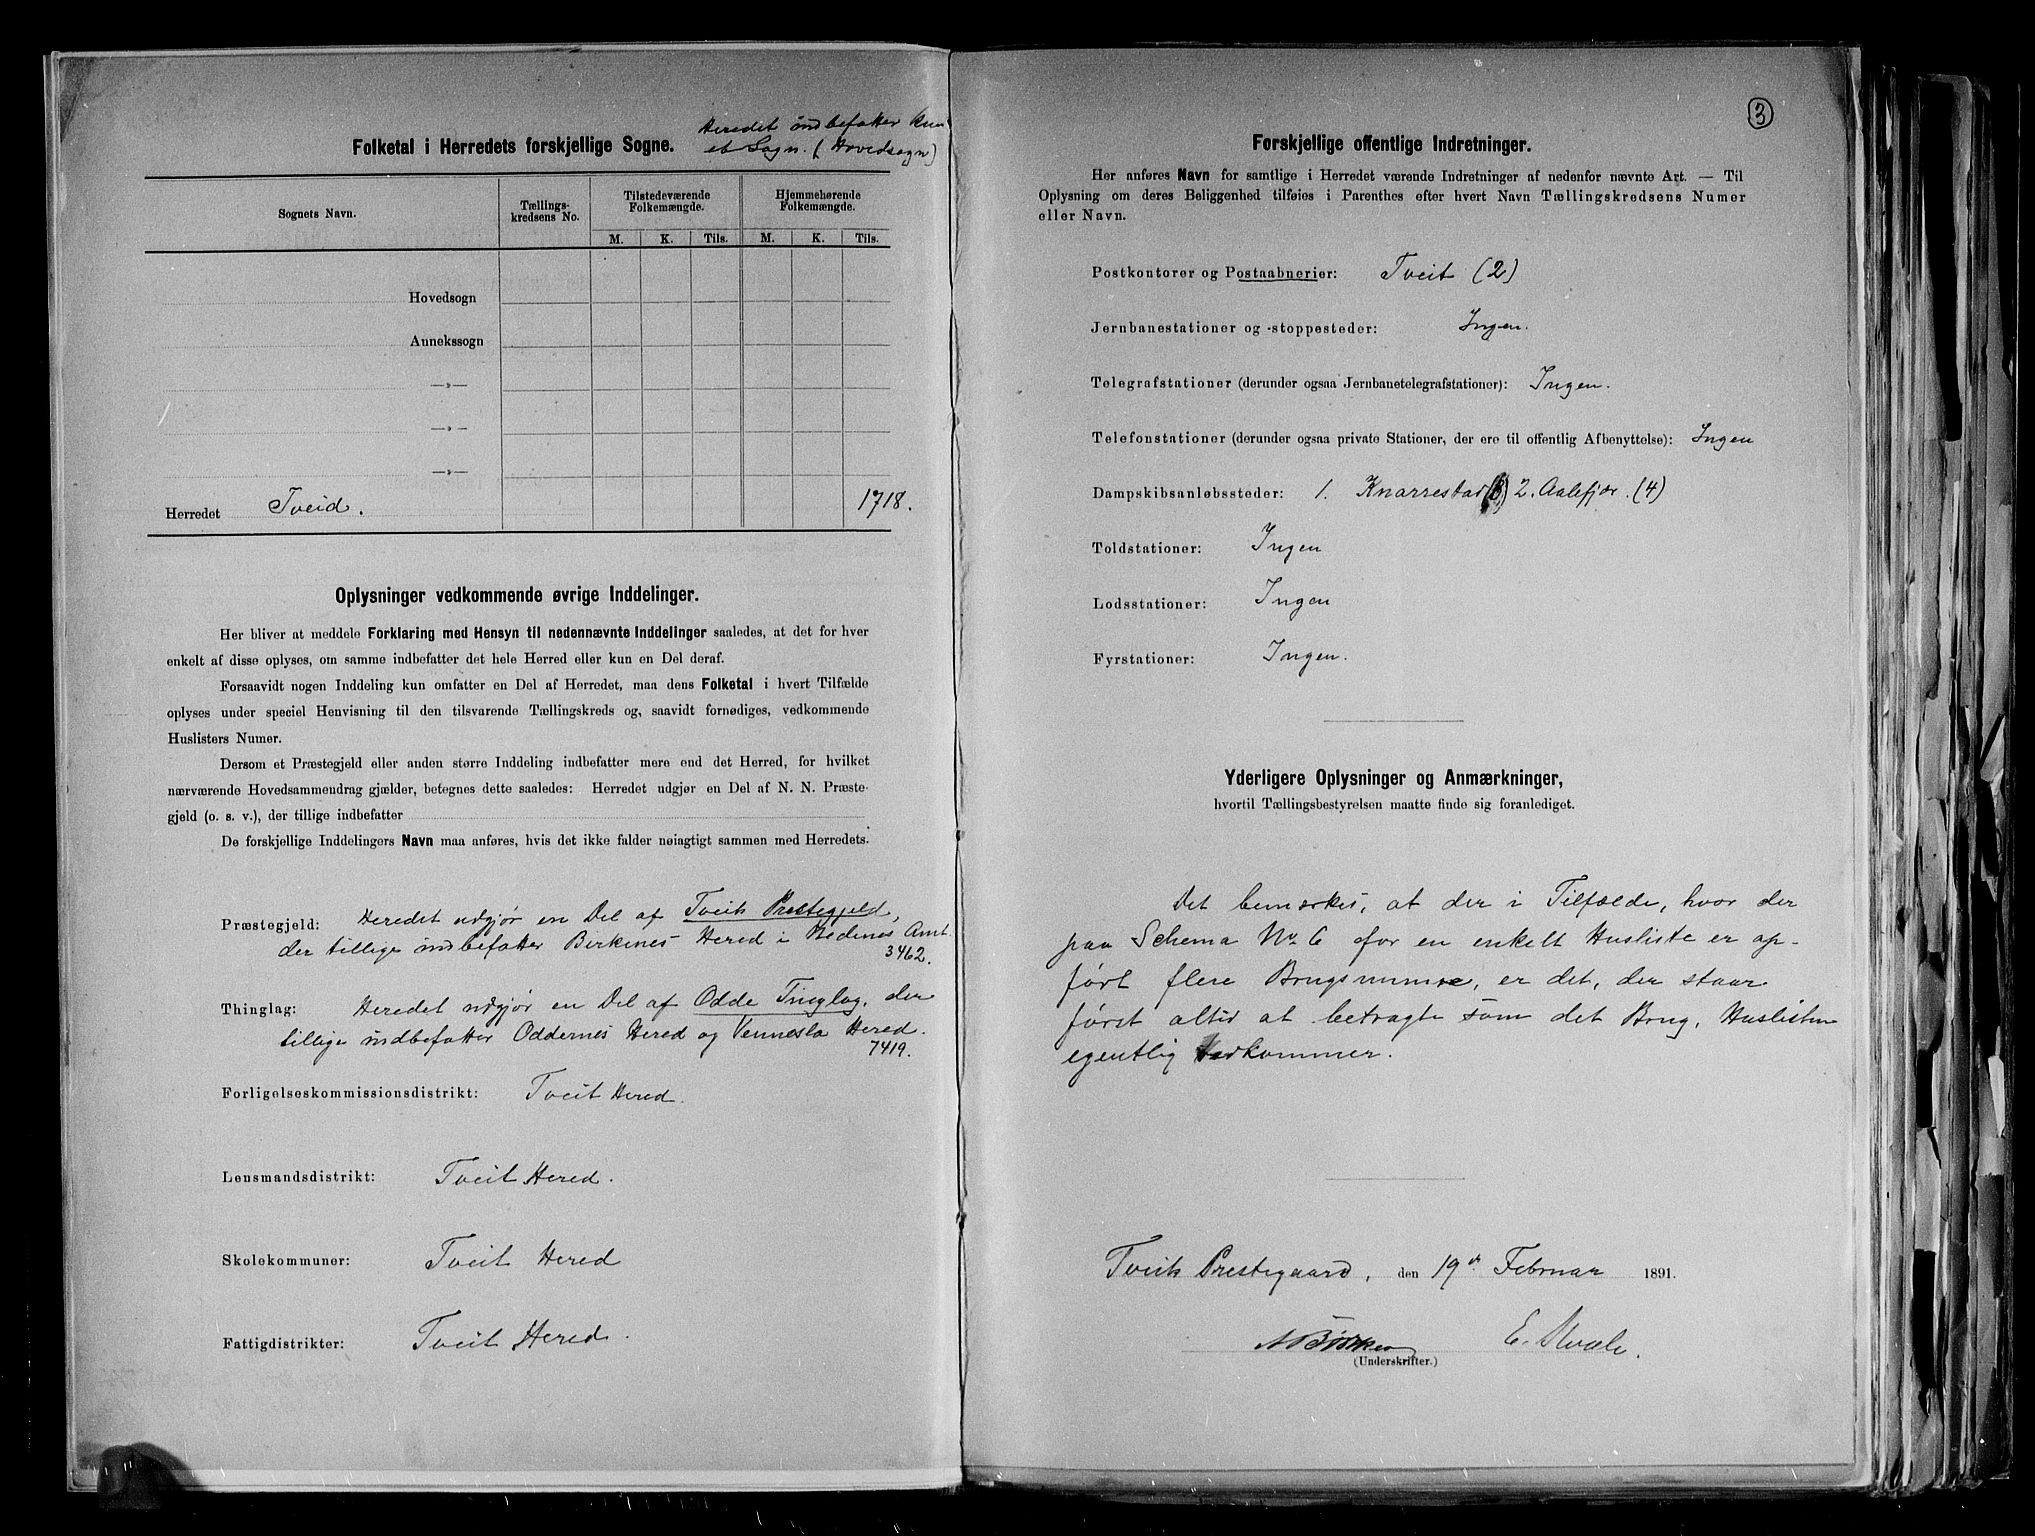 Folketal i Herredets forskjellige Sogne.
Heredet indbefatter kun
et Sogn. (Hovedsogn)
Sognets Navn.
Tællings-
kredsens No.
Tilstedeværende
Folkemængde.
Hjemmehørende
Folkemængde.
M. K. Tils. M. K. Tils.
Hovedsogn
Annekssogn
—»—
—»—
—»—
Herredet Tveid. 1718.
Oplysninger vedkommende øvrige Inddelinger.
Her bliver at meddele Forklaring med Hensyn til nedennævnte Inddelinger saaledes, at det for hver
enkelt af disse oplyses, om samme indbefatter det hele Herred eller kun en Del deraf.
Forsaavidt nogen Inddeling kun omfatter en Del af Herredet, maa dens Folketal i hvert Tilfælde
oplyses under speciel Henvisning til den tilsvarende Tællingskreds og, saavidt fornødiges, vedkommende
Huslisters Numer.
Dersom et Præstegjeld eller anden større Inddeling indbefatter mere end det Herred, for hvilket
nærværende Hovedsammendrag gjælder, betegnes dette saaledes: Herredet udgjør en Del af N. N. Præste-
gjeld (o. s. v.), der tillige indbefatter
De forskjellige Inddelingers Navn maa anføres, hvis det ikke falder nøiagtigt sammen med Herredets.
Præstegjeld: Heredet udgjør en Del af Tveits Prestegjeld,
der tillige indbefatter Birkenes Hered i Nedenes Amt.
3462.
Thinglag: Heredet udgjør en Del af Odde Tinglag, der
tillige indbefatter Oddernes Hered og Vennesla Hered.
7419.
Forligelseskommissionsdistrikt: Tveit Hered.
Lensmandsdistrikt: Tveit Hered.
Skolekommuner: Tveit Hered
Fattigdistrikter: Tveit Hered.
3
Forskjellige offentlige Indretninger.
Her anføres Navn for samtlige i Herredet værende Indretninger af nedenfor nævnte Art. — Til
Oplysning om deres Beliggenhed tilføies i Parenthes efter hvert Navn Tællingskredsens Numer
eller Navn.
Postkontorer og Postaabnerier: Tveit (2)
Jernbanestationer og -stoppesteder: Ingen.
Telegrafstationer (derunder ogsaa Jernbanetelegrafstationer): Ingen.
Telefonstationer (derunder ogsaa private Stationer, der ere til offentlig Afbenyttelse): Ingen
Dampskibsanløbssteder: 1. Knarrestad 2. Aalefjær. (4)
Toldstationer: Ingen
Lodsstationer: Ingen
Fyrstationer: Ingen.
Yderligere Oplysninger og Anmærkninger,
hvortil Tællingsbestyrelsen maatte finde sig foranlediget.
Det bemærkes, at der i Tilfælde, hvor der
paa Schema No 6 for en enkelt Husliste er op-
ført flere Brugsnumre, er det, der staar
først altid at betragte som det Brug, Huslisten
egentlig vedkommer.
Tveits Prestegaard, den 19de Februar 1891.
E. Kvale.
(Underskrifter.)